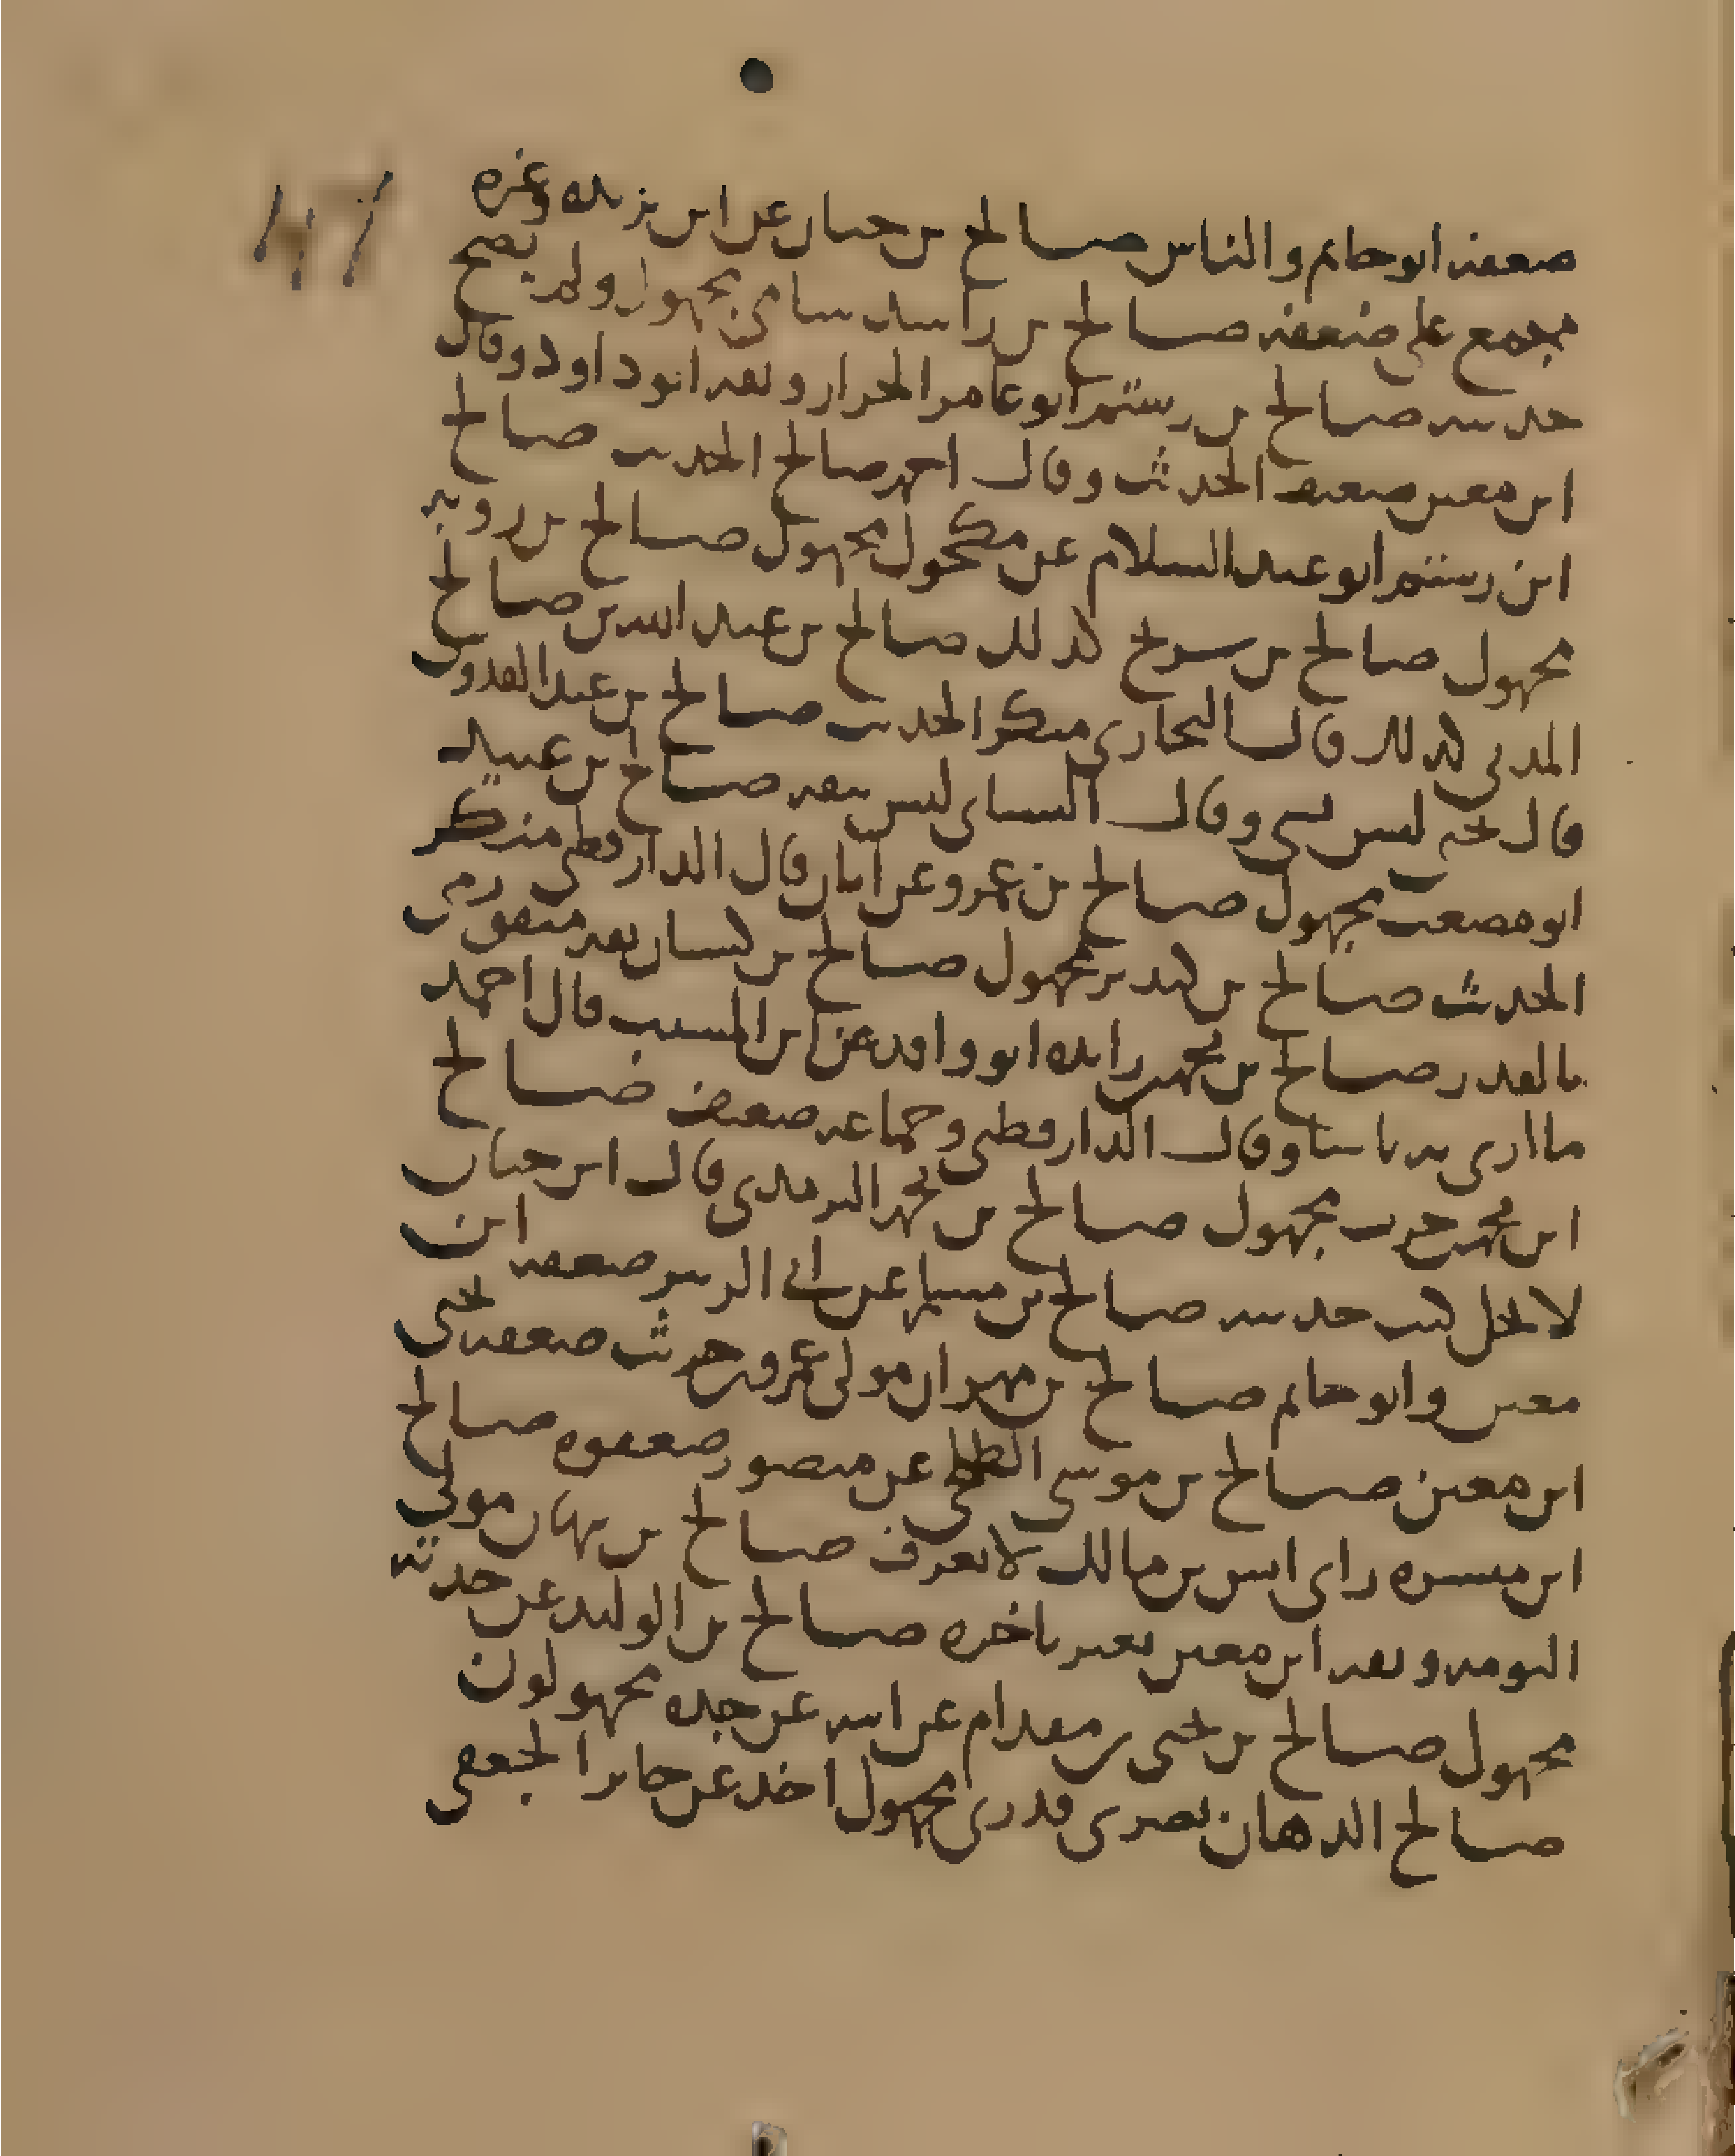 ضعفه ابو حاتم والناس صالح بن حبان عن ابن بريده وغيره
مجمع على ضعفه صالح بن راشد شامي مجهول ولم يصح
حديثه صالح بن رستم ابو عامر الخزاز وثقه ابو داود وقال
ابن معين ضعيف الحديث وقال احمد صالح الحديث صالح
ابن رستم ابو عبد السلام عن مكحول مجهول صالح بن رويه
مجهول صالح بن سرج كذلك صالح بن عبد الله بن صالح
المدني كذلك قال البخاري منكر الحديث صالح بن عبد القدوس
قال يحيى ليس بشي وقال النسائي ليس بثقه صالح بن عبيد الله
ابو مصعب مجهول صالح بن عمرو عن ابان قال الدارقطني منكر
الحديث صالح بن كندير مجهول صالح بن كيسان ثقه متفق رمي
بالقدر صالح بن محمد بن زايده ابو واقد عن ابن المسيب قال احمد
ما ارى به باسا وقال الدارقطني وجماعه ضعيف صالح
ابن محمد حرب مجهول صالح بن محمد الترمذي قال ابن حبان
لا يحل كتب حديثه صالح بن مسلم عن ابي الزبير ضعفه ابن
معين وابو حاتم صالح بن مهران مولى عمرو بن حريث ضعفه يحيى
ابن معين صالح بن موسى الطلحي عن منصور ضعفوه صالح
ابن ميسره راى انس بن مالك لا يعرف صالح بن نبهان مولى
التومه وثقه ابن معين تغير باخره صالح بن الوليد عن جدته
مجهول صالح بن يحيى بن مقدام عن ابيه عن جده مجهولون
صالح الدهان بصري قدري مجهول اخذ عن جابر الجعفي